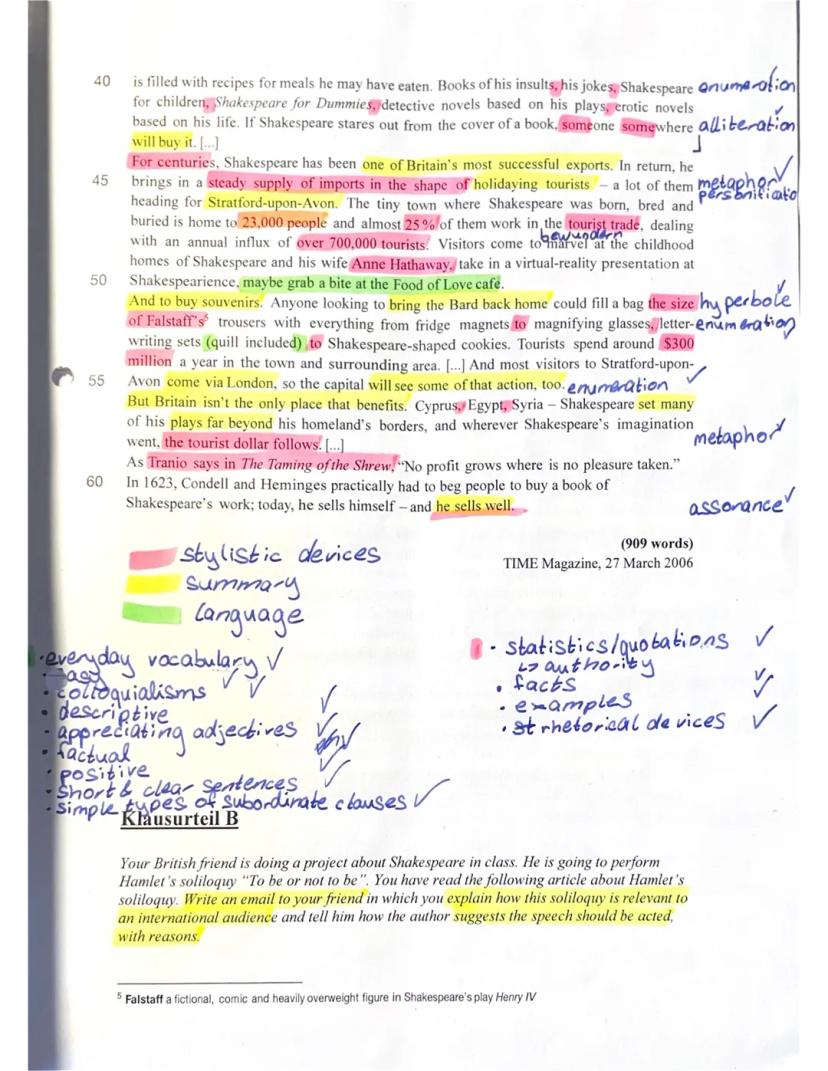 40 is filled with recipes for meals he may have eaten. Books of his insults, his jokes, Shakespeare enumeration
for children, Shakespeare for Dummies, detective novels based on his plays, erotic novels
based on his life. If Shakespeare stares out from the cover of a book, someone somewhere alliteration
will buy it. [...]
For centuries, Shakespeare has been one of Britain's most successful exports. In return, he
45 brings in a steady supply of imports in the shape of holidaying tourists – a lot of them metaphor
heading for Stratford-upon-Avon. The tiny town where Shakespeare was born, bred and personificatio
buried is home to 23,000 people and almost 25 % of them work in the tourist trade, dealing
with an annual influx of over 700,000 tourists. Visitors come to marvel at the childhood
bewundern
homes of Shakespeare and his wife Anne Hathaway, take in a virtual-reality presentation at
50 Shakespearience, maybe grab a bite at the Food of Love café.
And to buy souvenirs. Anyone looking to bring the Bard back home could fill a bag the size hyperbole
of Falstaff's5 trousers with everything from fridge magnets to magnifying glasses, letter- enumeration
writing sets (quill included) to Shakespeare-shaped cookies. Tourists spend around $300
million a year in the town and surrounding area. [...] And most visitors to Stratford-upon-
55 Avon come via London, so the capital will see some of that action, too. enumeration
But Britain isn't the only place that benefits. Cyprus, Egypt, Syria – Shakespeare set many
of his plays far beyond his homeland's borders, and wherever Shakespeare's imagination
went, the tourist dollar follows. [...] metaphor
As Tranio says in The Taming of the Shrew, “No profit grows where is no pleasure taken.”
60 In 1623, Condell and Heminges practically had to beg people to buy a book of
Shakespeare's work; today, he sells himself – and he sells well. assonance
(909 words)
TIME Magazine, 27 March 2006
stylistic devices
summary
language
• everyday vocabulary
• easy
• colloquialisms
• descriptive
• appreciating adjectives
• factual
• positive
• short & clear sentences
• simple types of subordinate clauses
• statistics/quotations
↳ authority
• facts
• examples
• st rhetorical devices
Klausurteil B
Your British friend is doing a project about Shakespeare in class. He is going to perform
Hamlet's soliloquy “To be or not to be”. You have read the following article about Hamlet's
soliloquy. Write an email to your friend in which you explain how this soliloquy is relevant to
an international audience and tell him how the author suggests the speech should be acted,
with reasons.
5 Falstaff a fictional, comic and heavily overweight figure in Shakespeare's play Henry IV